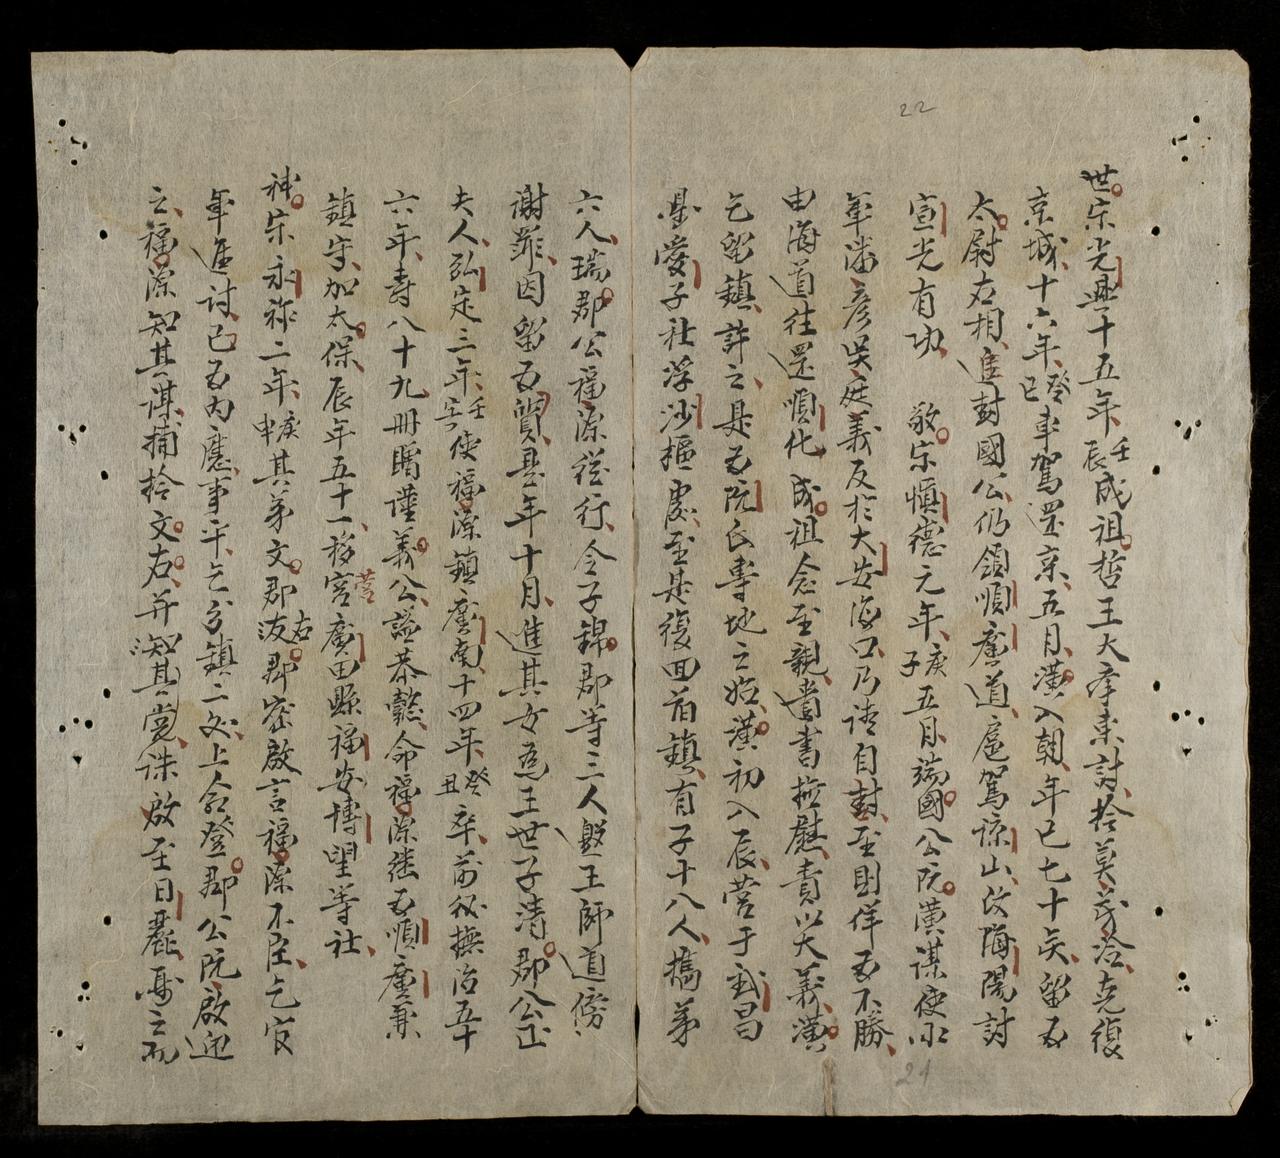 22
世宗光興十五年壬辰成祖哲王大率東討擒莫茂洽克復
京城十六年癸巳車駕還京五月潢入朝年已七十矣留為
太尉右相進封國公仍領順廣道扈駕諒山攻海陽討
宣光有功 敬宗慎德元年庚子五月端國公阮潢謀使小
年潘彥吳廷義反於大安海口乃請自討至則佯為不勝
由海道往還順化成祖念至親書慰責以大義潢
乞留鎮許之是為阮氏專地之始潢初入辰營于武昌
縣愛子社浮沙樞處至是復回旧鎮有子十八人攜第
六人瑞郡公福源從行令子錦郡等三人𨑗王師道傍
謝罪因留為質是年十月進其女為王世子清郡公正
夫人弘定三年壬寅使福源鎮廣南十四年癸丑卒前後撫治五十
六年壽八十九冊贈謹義公諡恭懿命福源繼為順廣兼
鎮守加太保辰年五十一移營廣田縣福安博望等社
神宗永祚二年庚申其弟文郡右郡密啟言福源不臣乞官
軍進討已為內應事平乞分鎮二處上令登郡公阮啟迎
之福源知其謀捕擒文右并其黨誅啟至日麗海之口
21